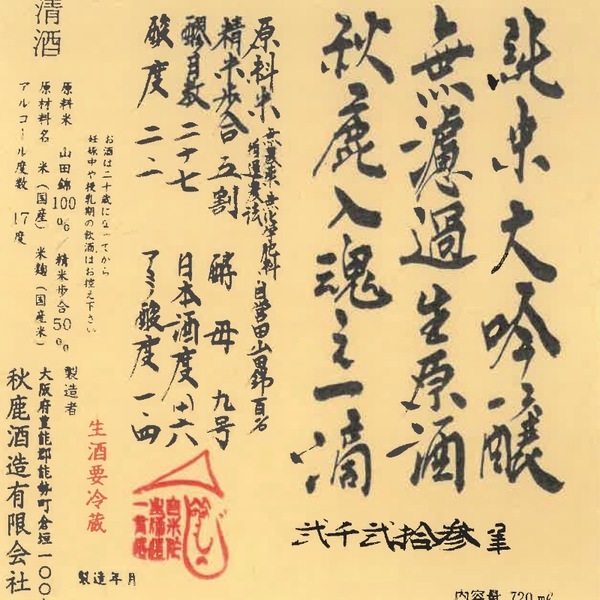 純米大吟醸
無濾過生原酒
秋鹿入魂之一滴
弐千弐拾参年
内容量 720mℓ
原料米 無農薬無化学肥料 自営田山田錦百%
精米歩合 五割 酵母 九号
醪日数 二十七 日本酒度 +六
酸度 二.二 アミノ酸度 一.四
生酒要冷蔵
製造年月
お酒は二十歳になってから
妊娠中や授乳期の飲酒はお控え下さい
製造者
原料米 山田錦100% / 精米歩合50%
大阪府豊能郡能勢町倉垣一〇〇
原材料名 米(国産) 米麹(国産米)
秋鹿酒造有限会社
アルコール度数 17度
清酒